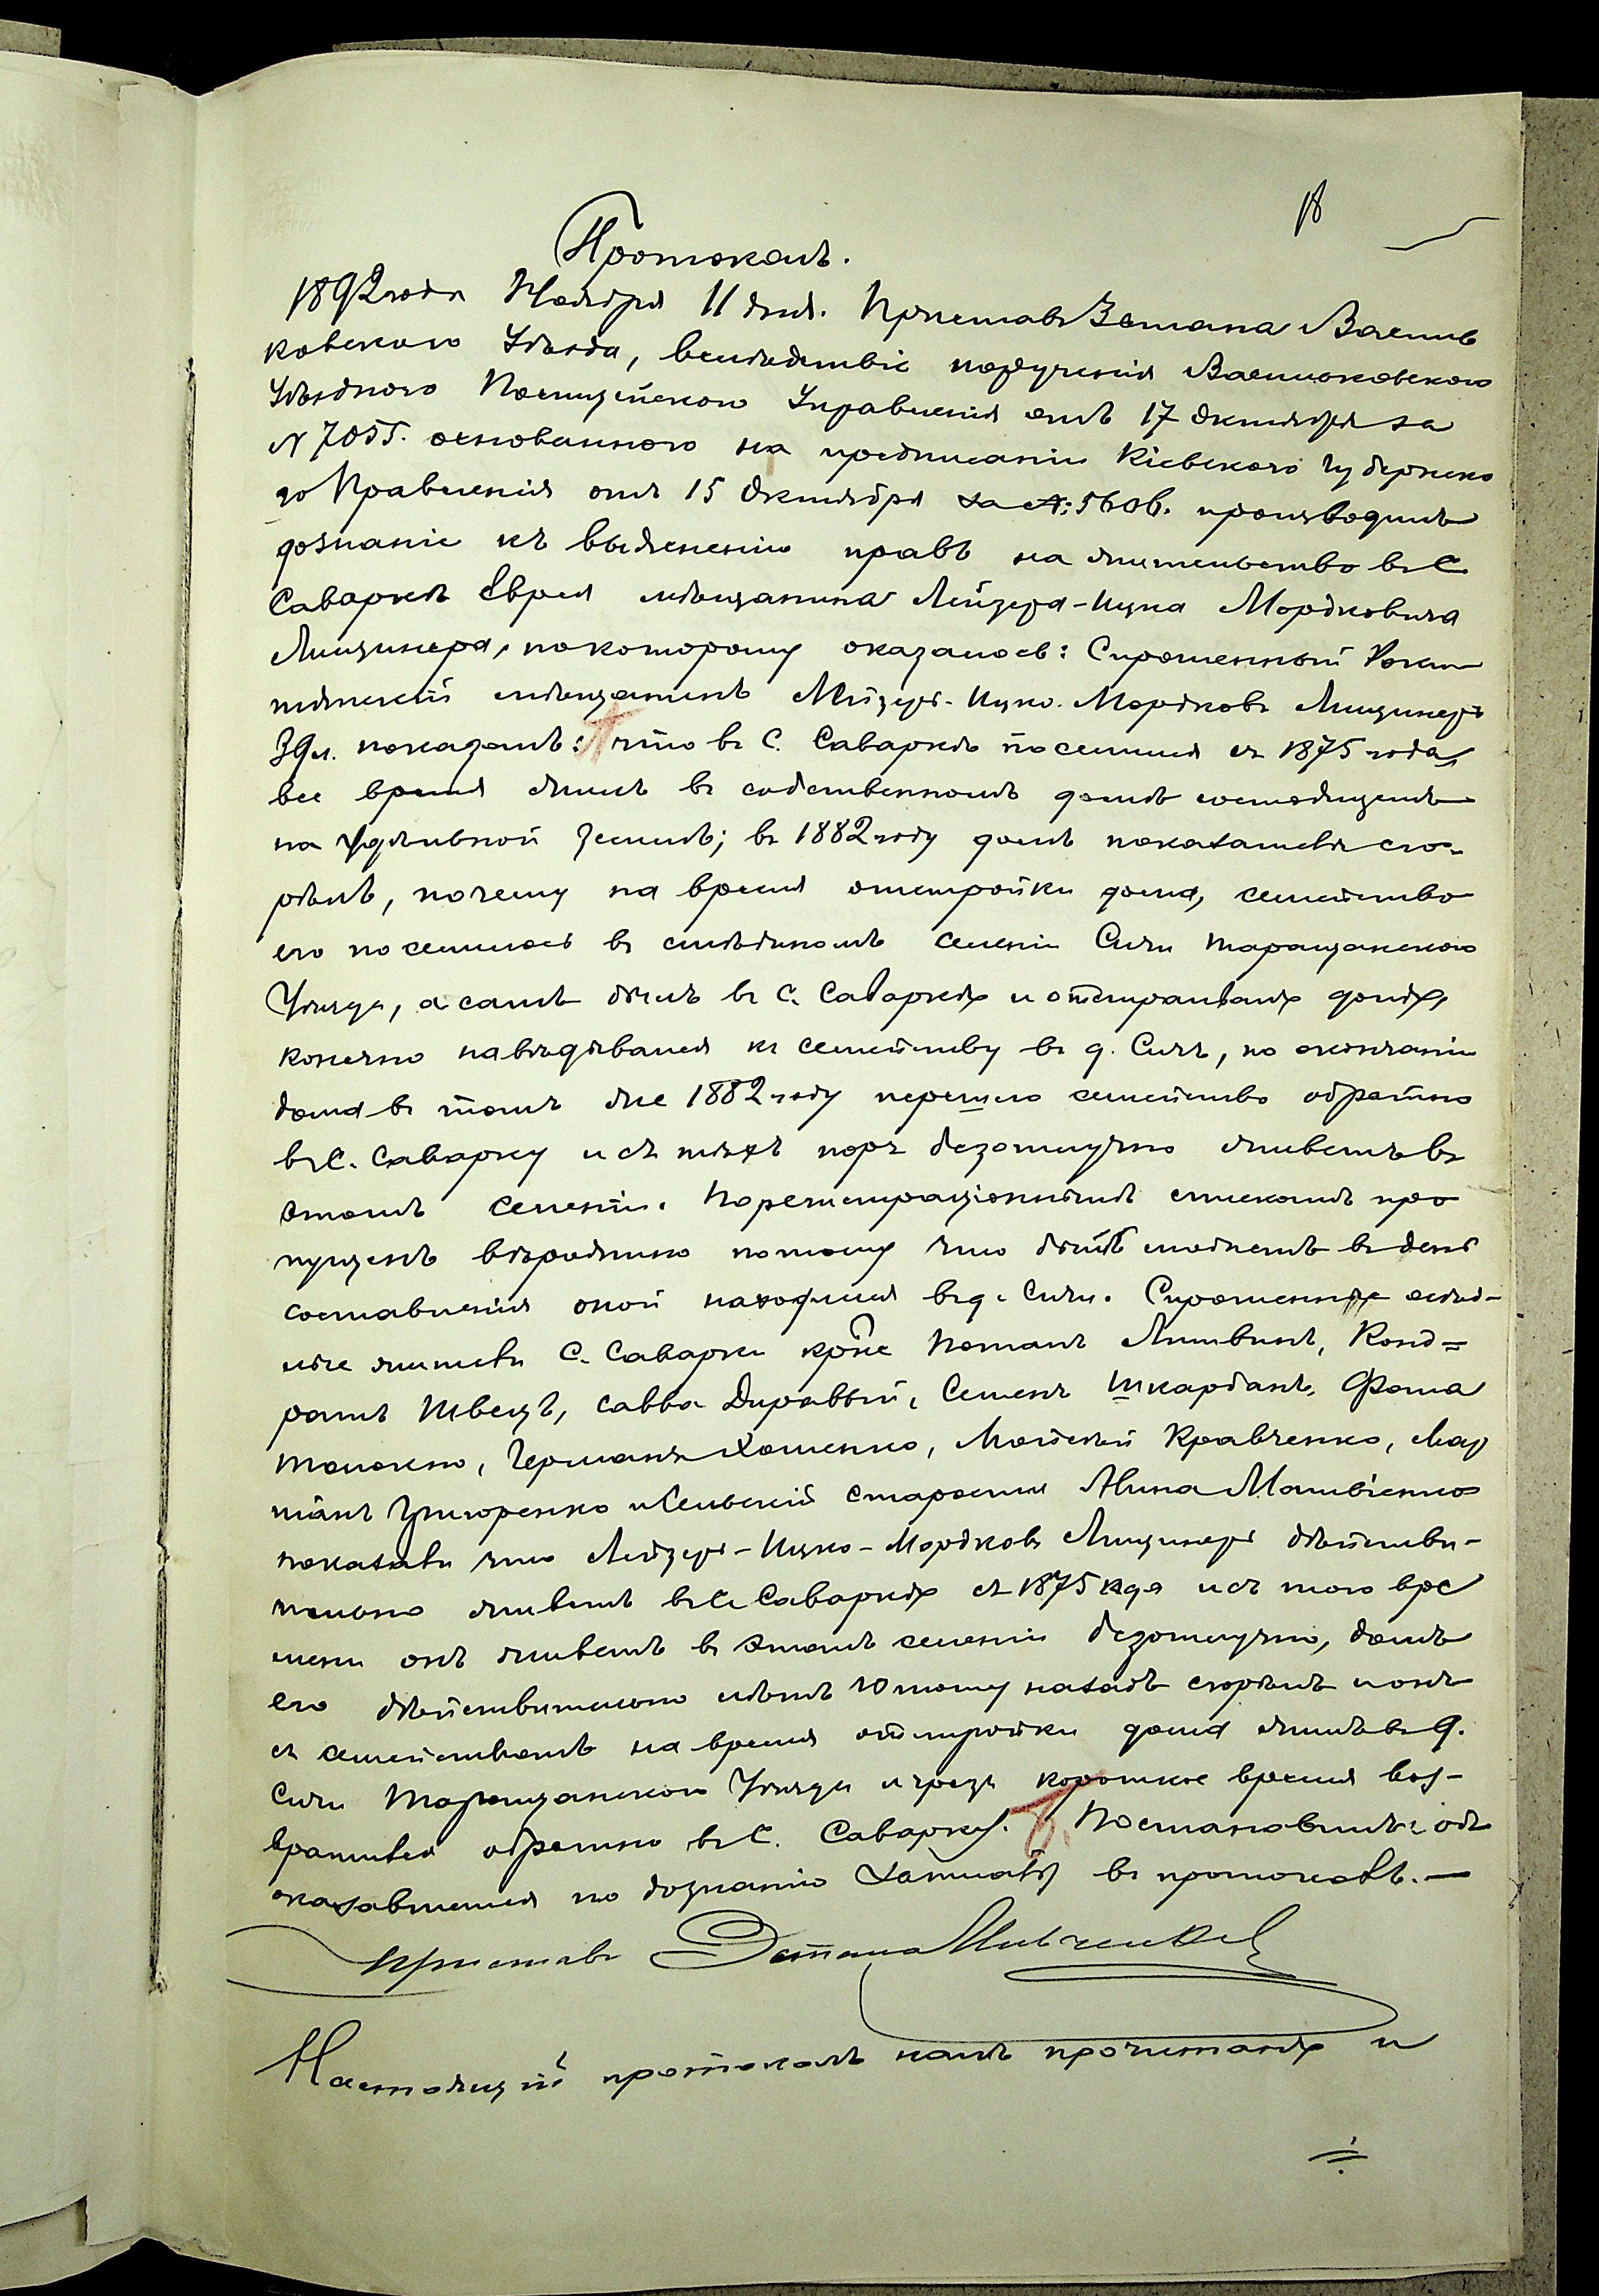 18
Протоколъ.
1892 года Ноября 11 дня. Приставъ 3 стана Василь
ковскаго Уѣзда, вслѣдствіе порученія Васильковскаго
Уѣзднаго Полицейскаго Управленія отъ 17 Октября за
№ 7055. основаннаго на предписаніи Кіевскаго Губернска
го Правленія отъ 15 Октября за №: 5606. производилъ
дознаніе къ выясненію правъ на жительство въ С.
Саваркѣ Еврея мѣщанина Лейзера-Ицка Мордковича
Лищинера, по которому оказалось: Спрошенный
мѣщанинъ Лейзеръ-Ицко Мордковъ Лищинеръ
39 л. показалъ: что въ С. Саваркѣ поселился съ 1875 года,
все время жилъ въ собственномъ домѣ состоящемъ
на земли; въ 1882 году домъ показателя сго-
рѣлъ, почему на время отстройки дома, семейство
его поселилось въ селеніи Сичи Таращанскаго
Уѣзда, а самъ былъ въ С. Саваркѣ и отстраивалъ домъ,
конечно навѣдывался къ семейству въ д. Сичъ, по окончаніи
дома въ томъ же 1882 году перешло семейство обратно
въ С. Саварку и съ тѣхъ поръ безотлучно живетъ въ
этомъ селеніи. По регистраціоннымъ спискамъ про
пущенъ вѣроятно потому что былъ можетъ въ день
составленія оной находился въ д. Сичи. Спрошенные
жители С. Саварки кр͡не Потапъ Литвинъ,Конд=
ратъ Швецъ, Савва Дыравый, Семенъ Шкарбанъ, Фома
Толокно, Германъ Хоменко, Мойсей Кравченко, Мар
тинъ Григоренко и Сельскій Староста Матвіенко
показали что Лейзеръ-Ицко-Мордковъ Лищинеръ дѣйстви-
тельно живетъ въ С. Саваркѣ съ 1875 года и съ того вре
мени онъ живетъ въ этомъ селеніи безотлучно, домъ
его дѣйствительно лѣтъ 10 тому назадъ сгорѣлъ и онъ
съ семействомъ на время отстройки дома жилъ въ д.
Сичи Таращанскаго Уѣзда и чрезъ короткое время воз-
вратился обратно въ С. Саварку. Постановилъ: объ
оказавшемся по дознанію записать въ протоколъ.—
Приставъ 3 стана
Настоящій протоколъ намъ прочитанъ и